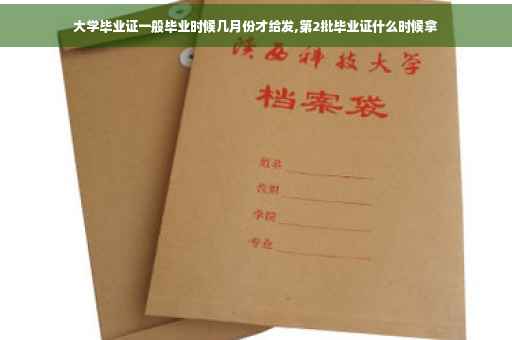 大学毕业证一般毕业时候几月份才给发,第2批毕业证什么时候拿
陕西科技大学
档案袋
姓名
性别
学院
专业